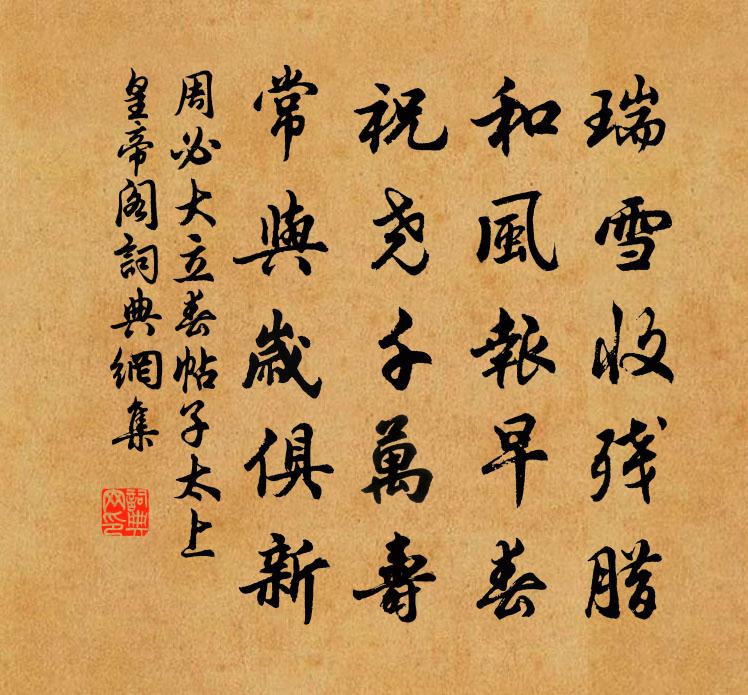 瑞雪收残腊
和風報早春
祝堯千萬壽
常與歲俱新
周必大立春帖子太上
皇帝阁詞典網集
詞典網印